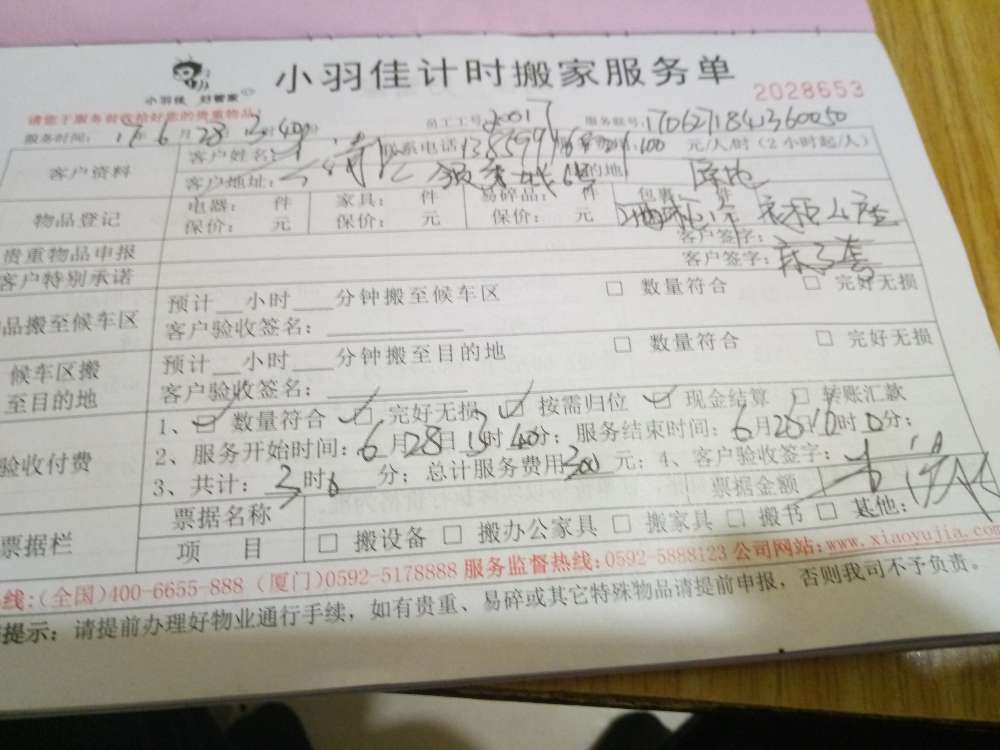 小羽佳计时搬家服务单
小羽佳 好管家
2028653
请您于服务前收拾好您的贵重物品
服务时间: 17年6月28日 员工工号 服务账号:
客户资料 客户姓名: 联系电话 100 元/人/时(2小时起/人)
客户地址: 目的地
物品登记 电器: 件 家具: 件 易碎品: 件 包裹: 件
保价: 元 保价: 元 保价: 元
贵重物品申报 客户签字:
客户特别承诺 客户签字:
品搬至候车区 预计__小时___分钟搬至候车区 □ 数量符合 □ 完好无损
客户验收签名:
候车区搬至目的地 预计__小时___分钟搬至目的地 □ 数量符合 □ 完好无损
客户验收签名:
验收付费 1、☑ 数量符合 ☑ 完好无损 ☑ 按需归位 ☑ 现金结算 □ 转账汇款
2、服务开始时间:6月28日13时40分; 服务结束时间:6月28日 时 分;
3、共计: 时 分; 总计服务费用300元; 4、客户验收签字:
票据栏 票据名称 票据金额
项 目 □ 搬设备 □ 搬办公家具 □ 搬家具 □ 搬书 □ 其他:
线:(全国)400-6655-888 (厦门)0592-5178888 服务监督热线:0592-5888123 公司网站:www.xiaoyujia.com
提示: 请提前办理好物业通行手续, 如有贵重、易碎或其它特殊物品请提前申报, 否则我司不予负责。